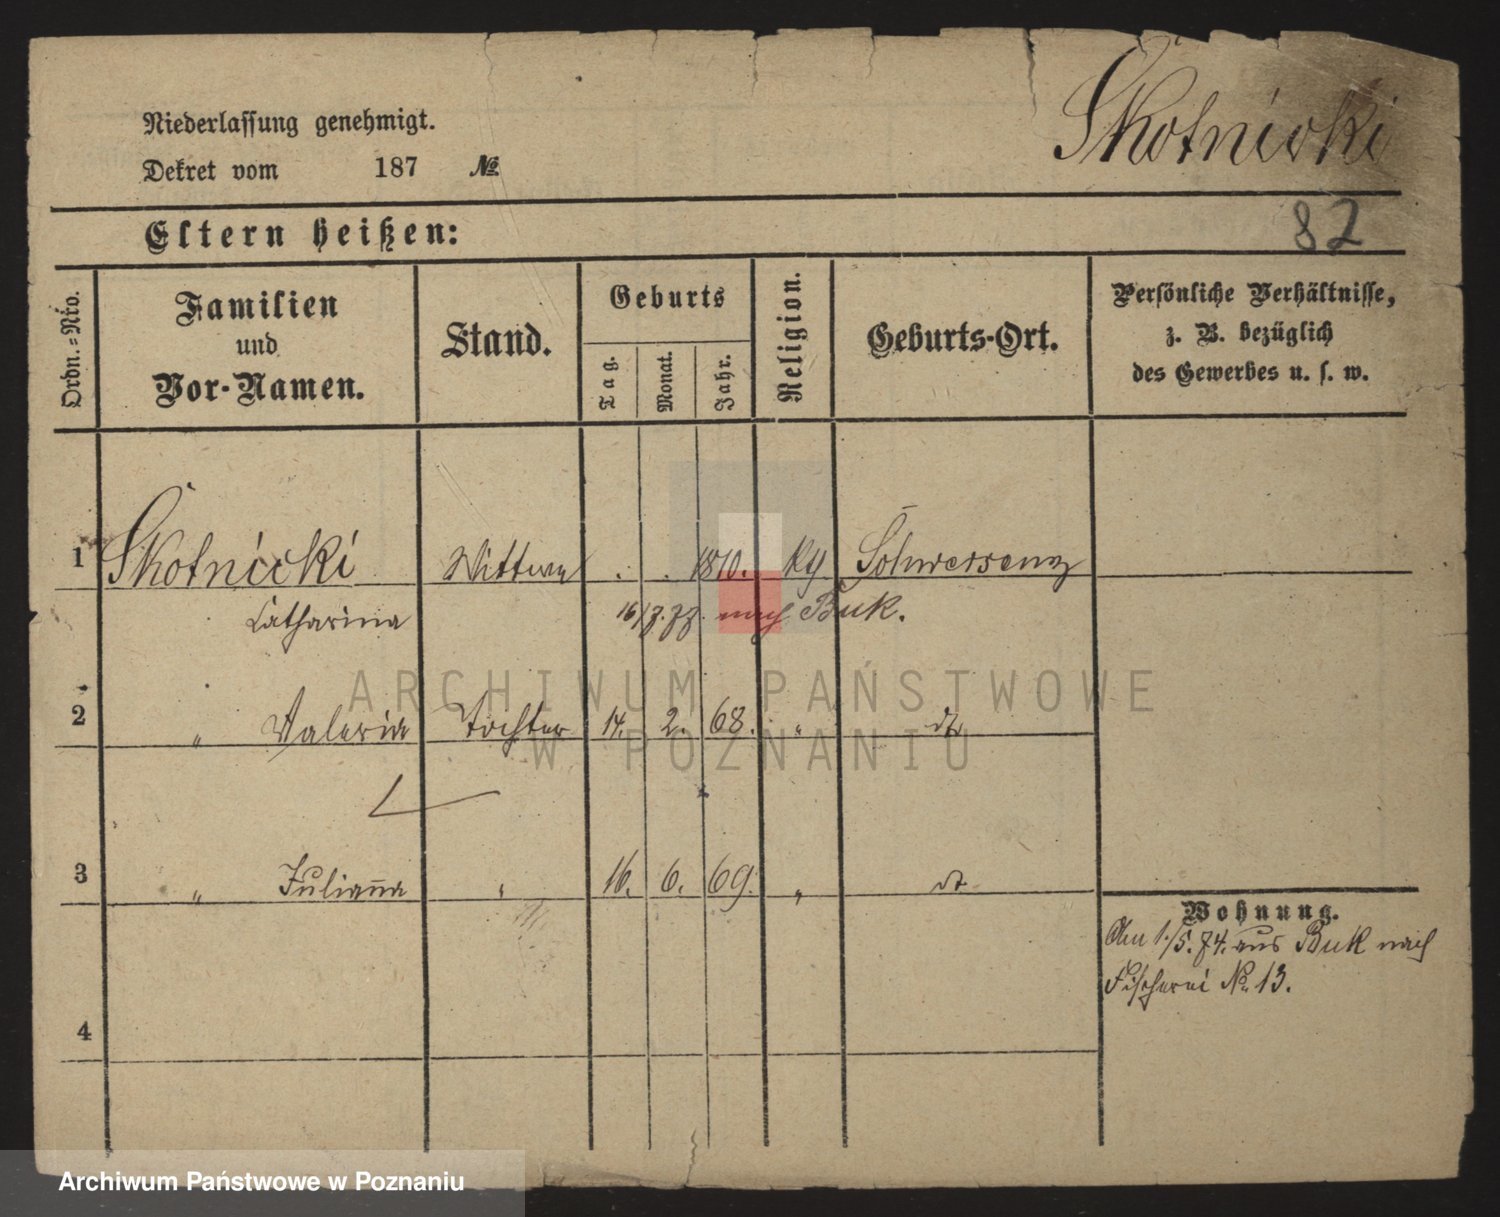 Niederlassung genehmigt.
Dekret vom 187 №
Skotnicki
Eltern heißen:
82
Ordn.=Nro.
Familien und Vor-Namen.
Stand.
Geburts
Tag. Monat. Jahr.
Religion.
Geburts-Ort.
Persönliche Verhältnisse, z. B. bezüglich des Gewerbes u. s. w.
1 Skotnicki Wittwe . . 1810. Schwersenz
Catharina 16/7.77. nach Buk.
2 " Valeria Tochter 14. 2. 68. " dto
3 " Julianna " 16. 6. 69. " dto
Wohnung.
Am 1./5.74. aus Buk nach
Fischerei No. 13.
4
ARCHIWUM PAŃSTWOWE
W POZNANIU
Archiwum Państwowe w Poznaniu